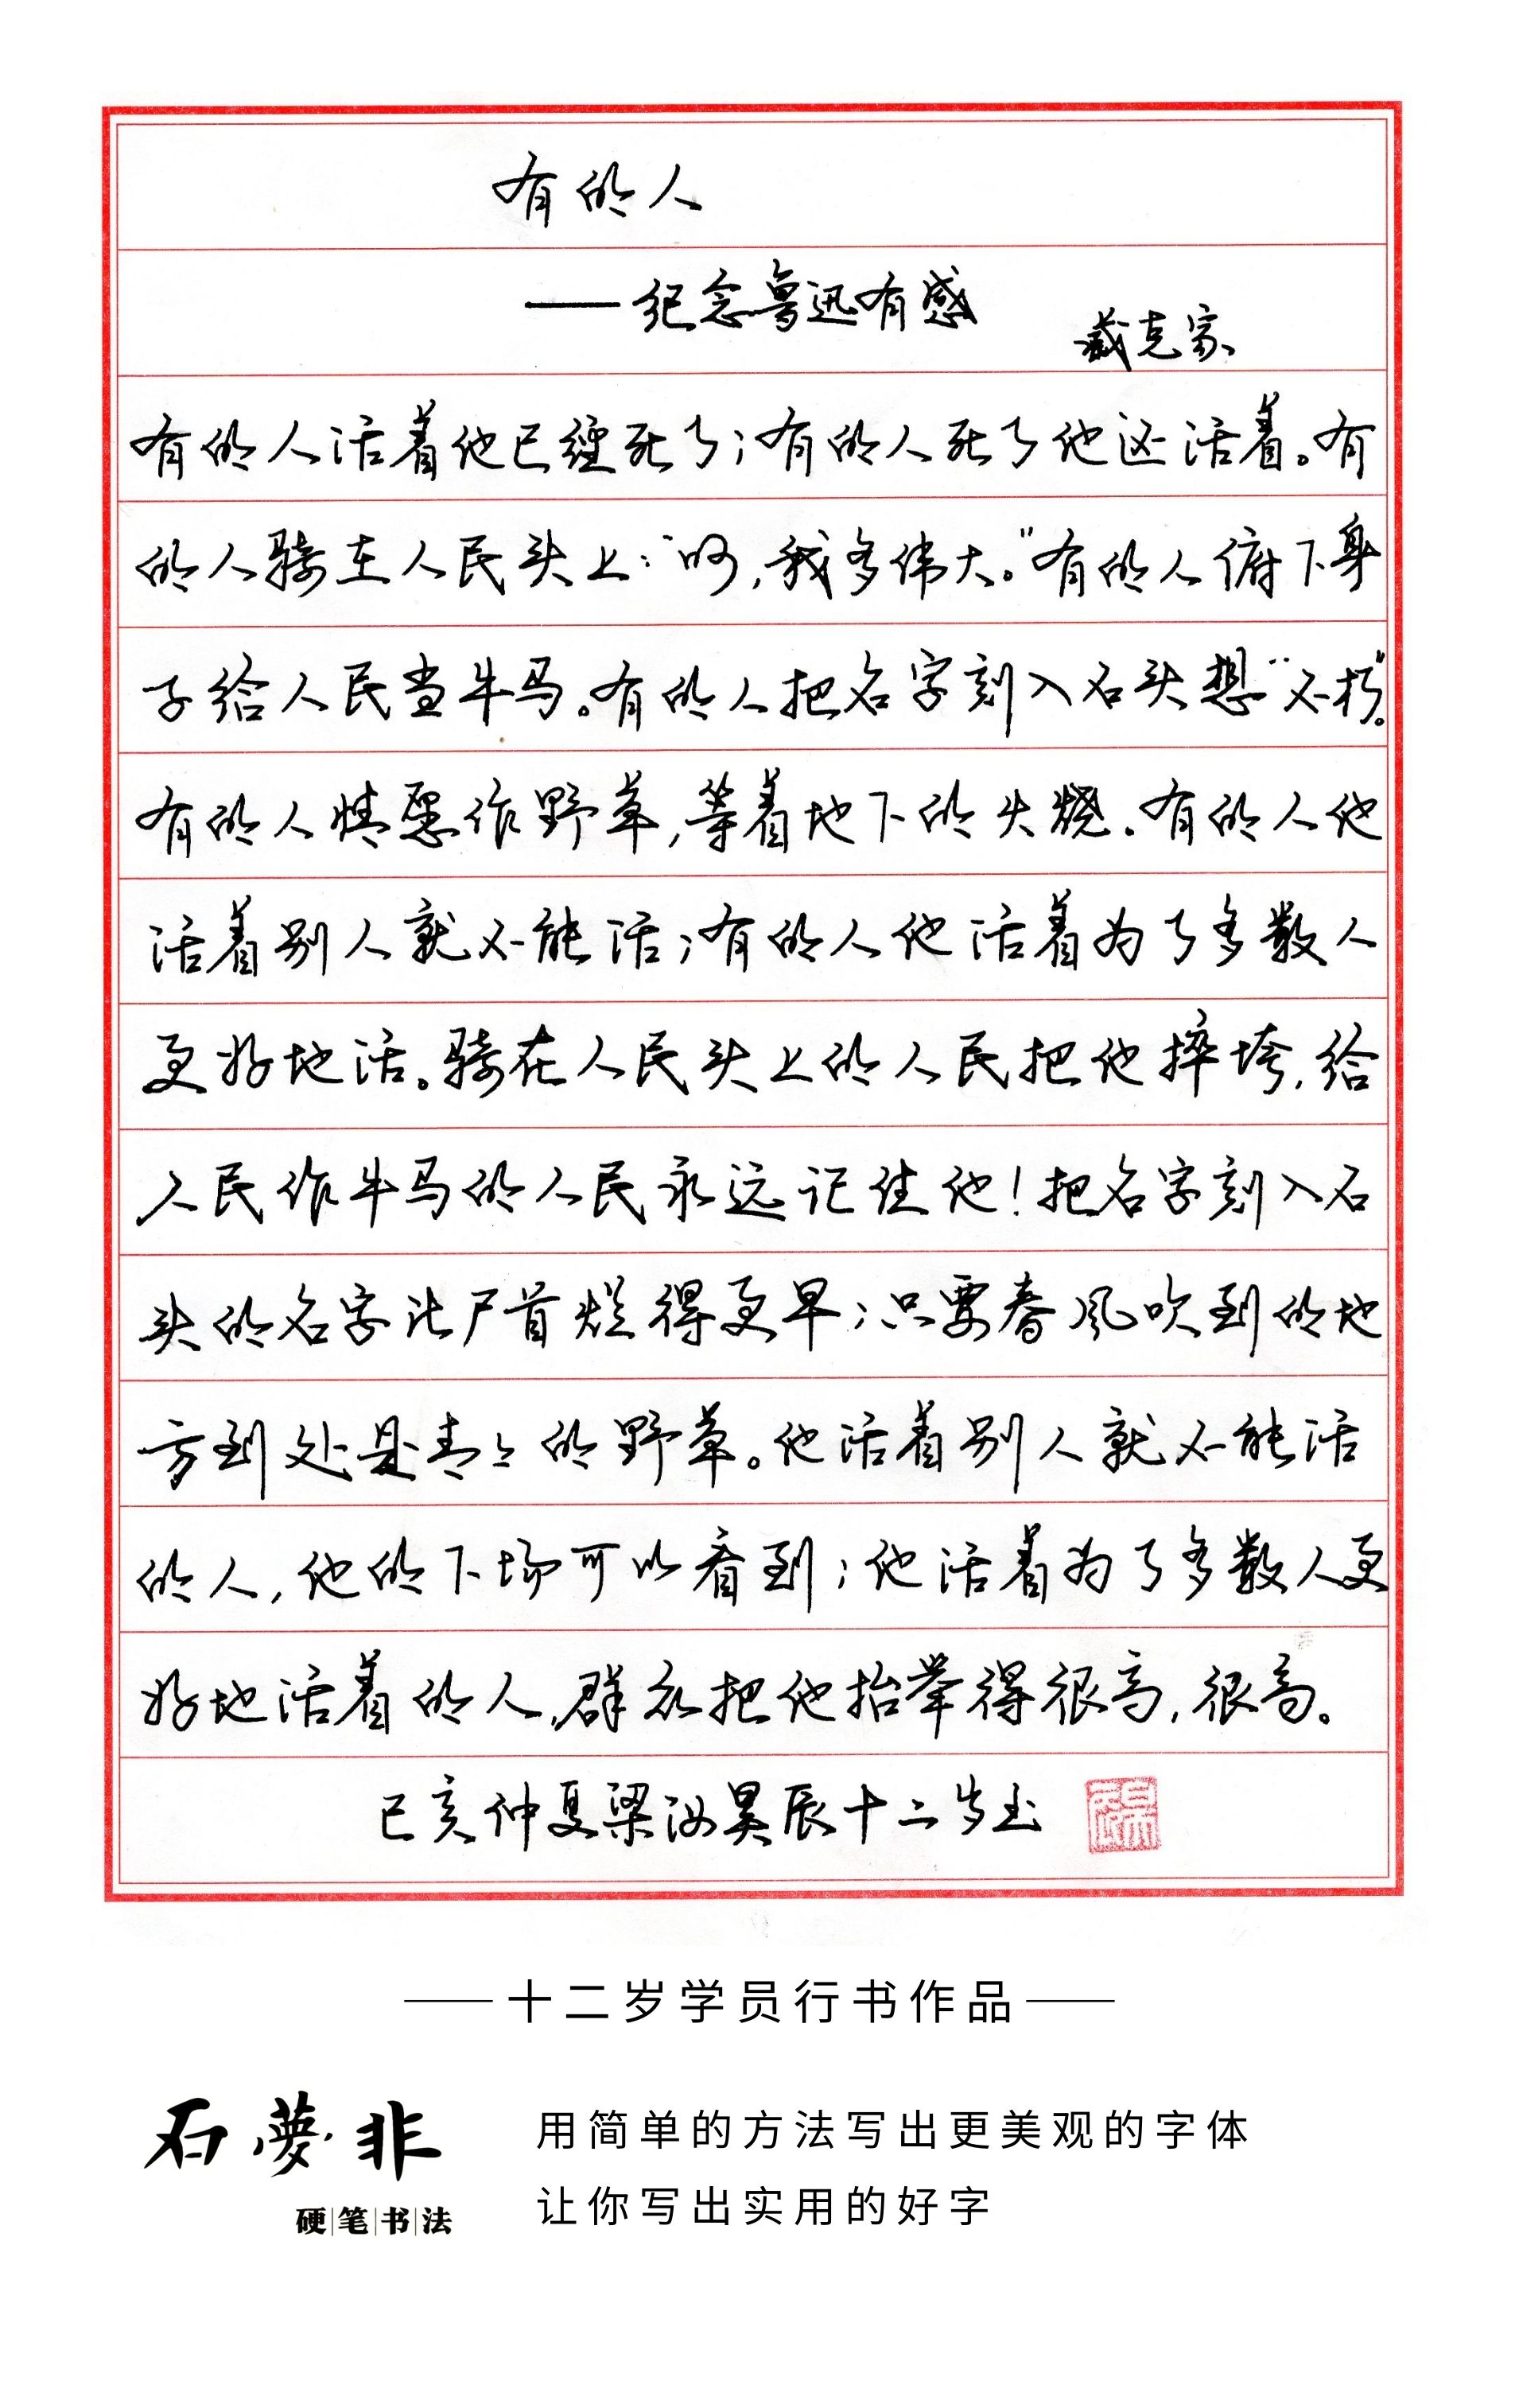 有的人
——纪念鲁迅有感
臧克家
有的人活着他已经死了；有的人死了他还活着。有
的人骑在人民头上：“呵，我多伟大。”有的人俯下身
子给人民当牛马。有的人把名字刻入石头想“不朽”。
有的人情愿作野草，等着地下的火烧。有的人他
活着别人就不能活；有的人他活着为了多数人
更好地活。骑在人民头上的人民把他摔垮，给
人民作牛马的人民永远记住他！把名字刻入石
头的名字比尸首烂得更早；只要春风吹到的地
方到处是青々的野草。他活着别人就不能活
的人，他的下场可以看到；他活着为了多数人更
好地活着的人，群众把他抬举得很高，很高。
己亥仲夏梁汝昊辰十二岁书
十二岁学员行书作品
石夢非
硬笔书法
用简单的方法写出更美观的字体
让你写出实用的好字